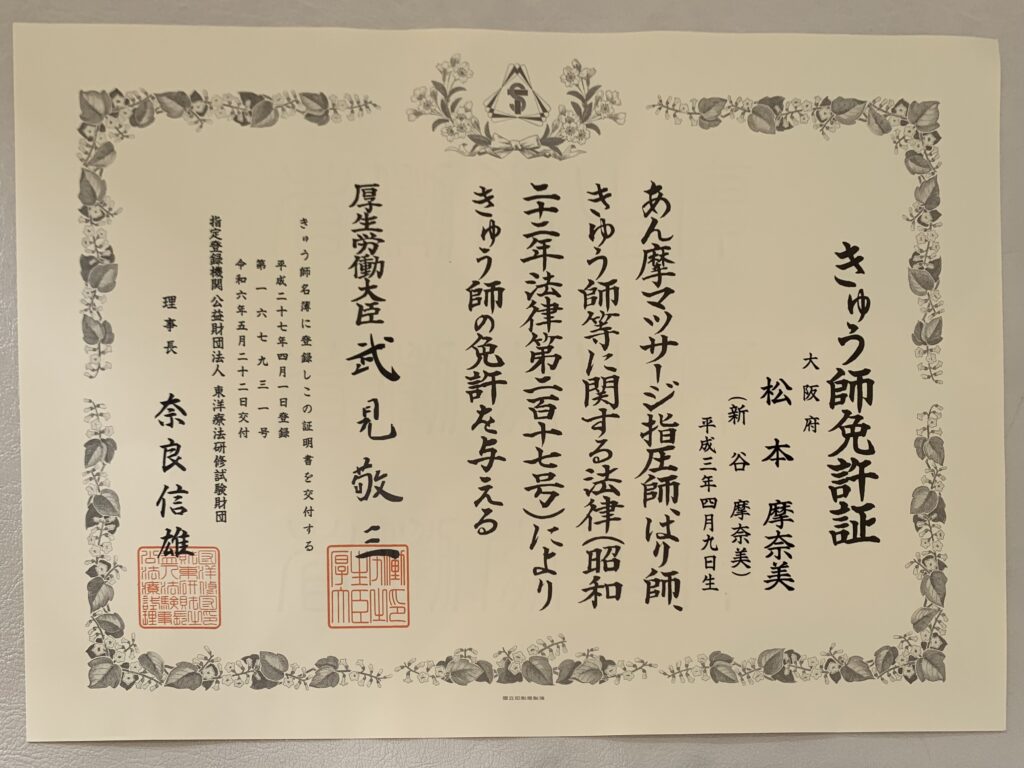 きゅう師免許証
大阪府
松本 摩奈美
(新谷 摩奈美)
平成三年四月九日生
あん摩マツサージ指圧師、はり師、
きゆう師等に関する法律(昭和
二十二年法律第二百十七号)により
きゅう師の免許を与える
厚生労働大臣 武見敬三
きゅう師名簿に登録しこの証明書を交付する
平成二十七年四月一日登録
第一六七九三一号
令和六年五月二十二日交付
指定登録機関 公益財団法人 東洋療法研修試験財団
理事長 奈良信雄